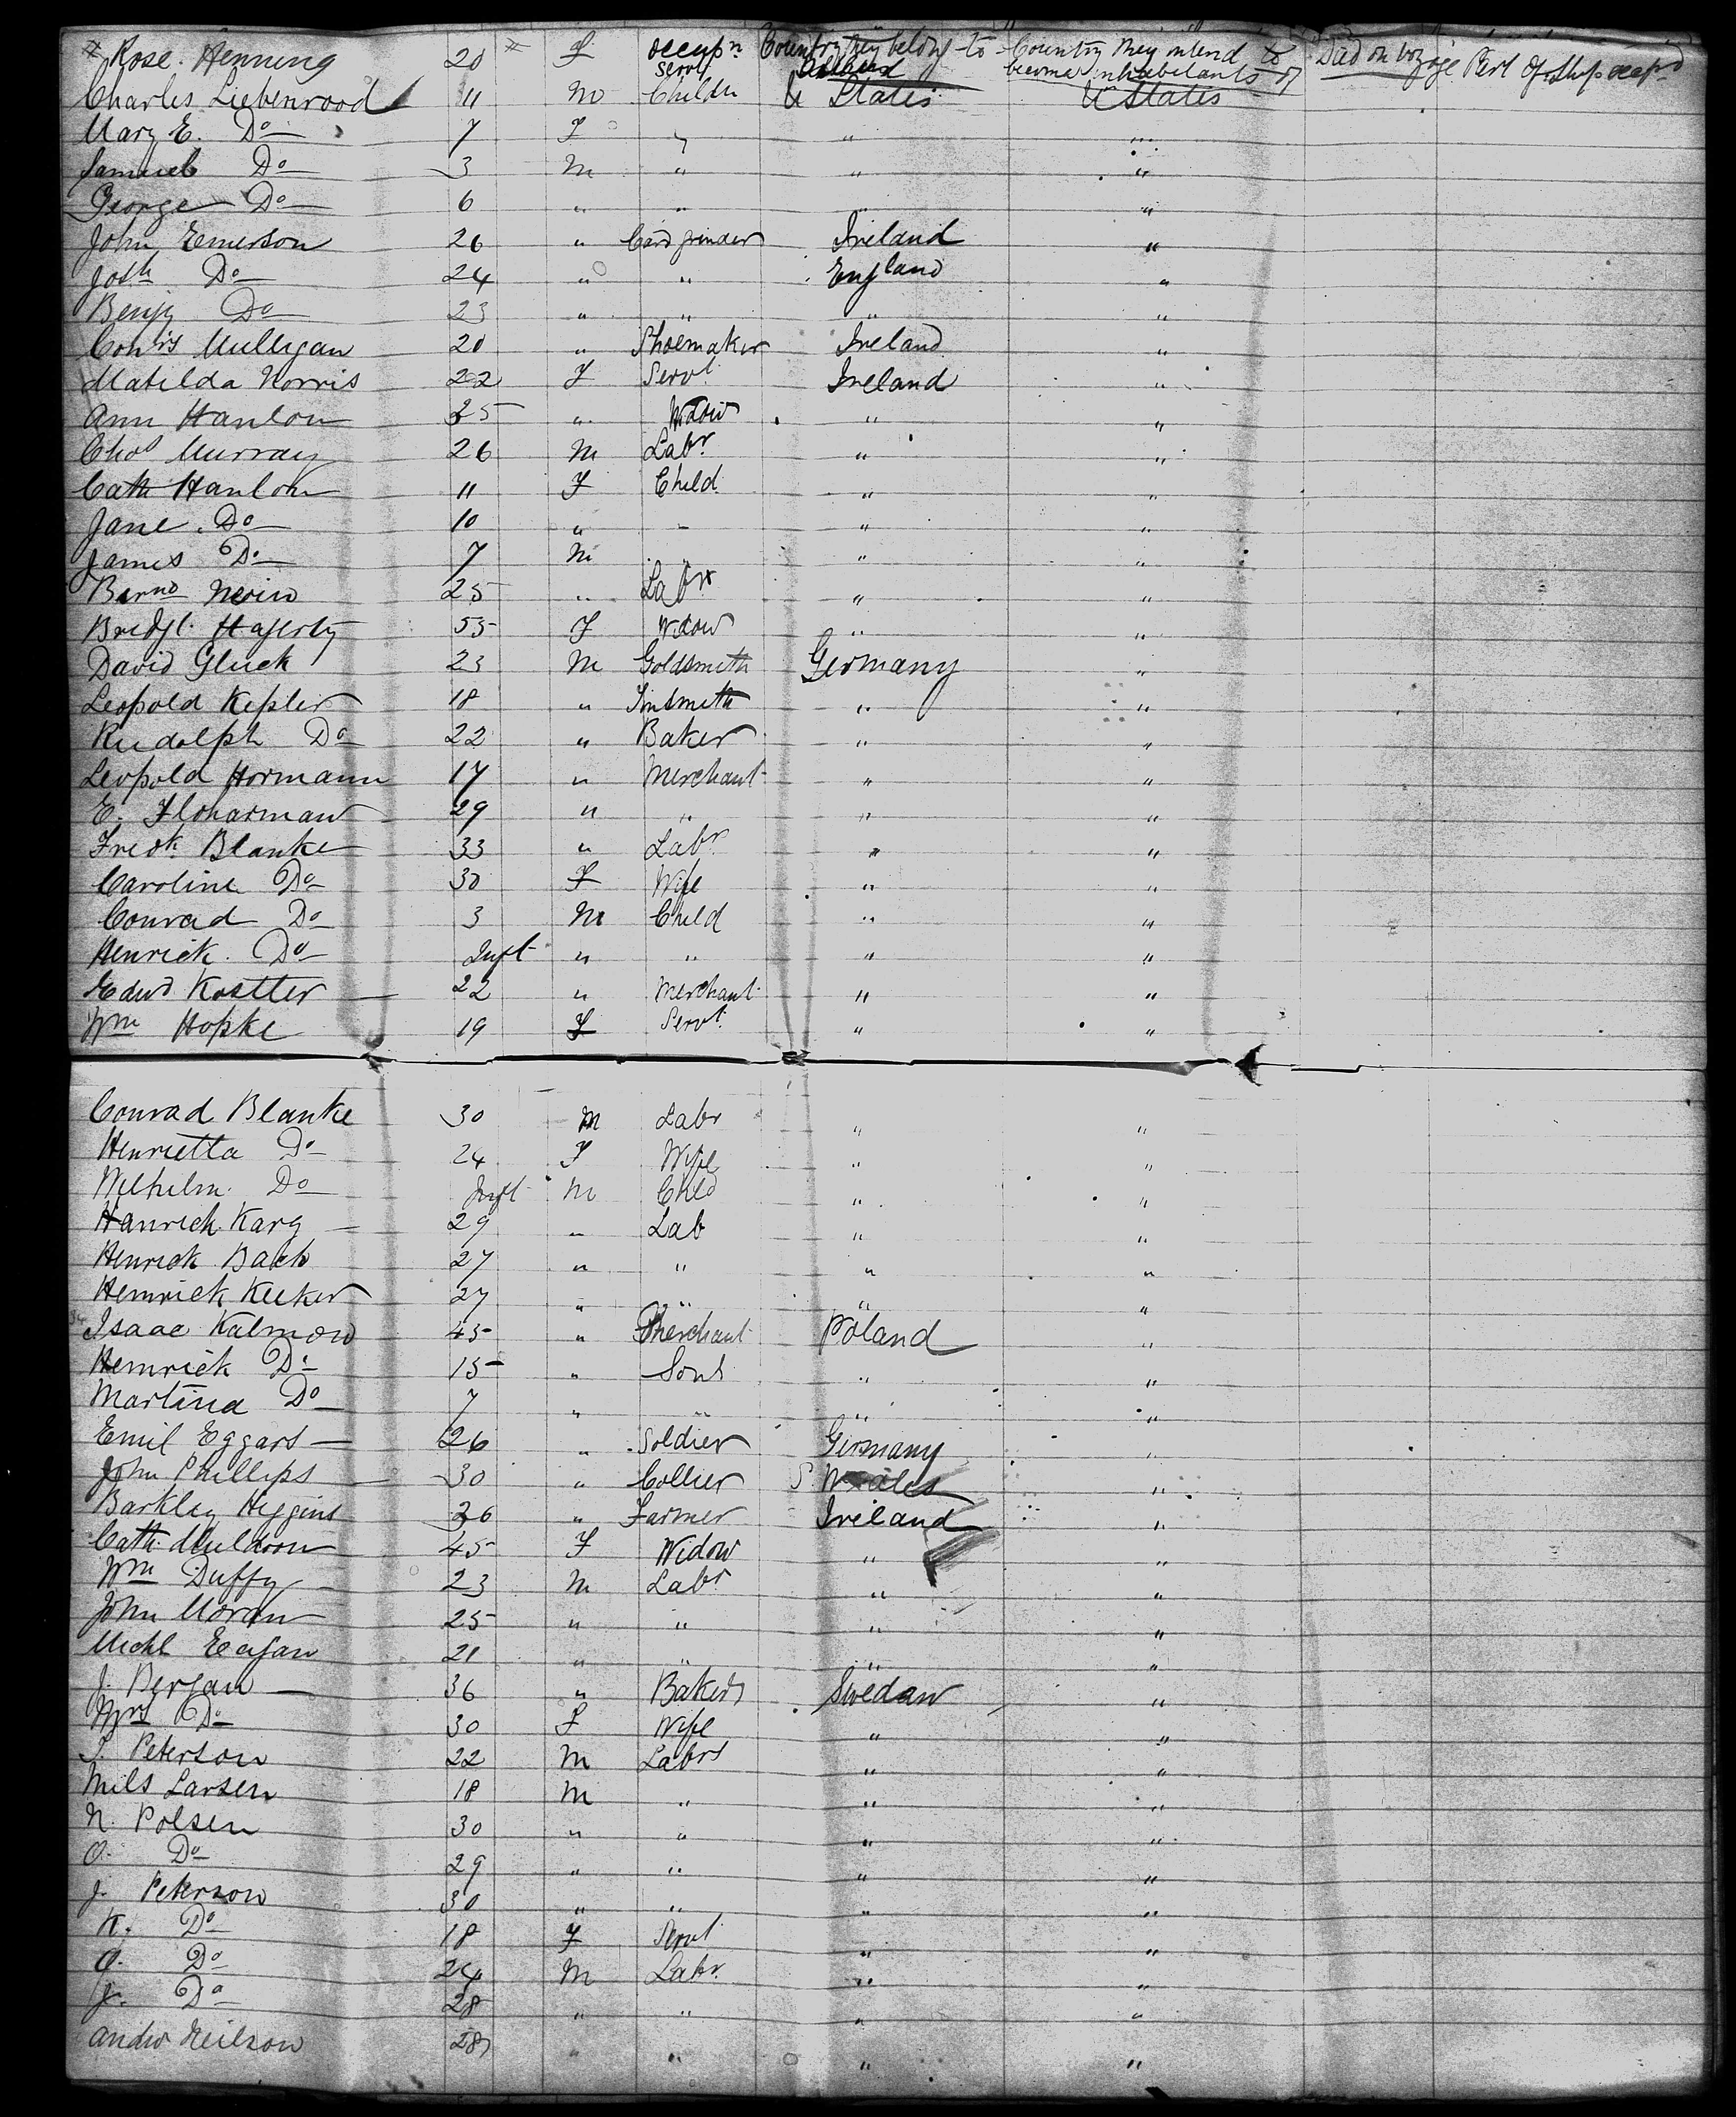 Rose. Henning 20 F occupn Servt Country they belong to Ireland Country they intend to become inhabitants of Died on voyage Part of Ship occupd
Charles Liebenrood 11 M Childn U States U States
Mary E. Do 7 F " " "
Samuel Do 3 M " " "
George Do 6 " " " "
John Emerson 26 " Card grinder Ireland "
Josh Do 24 " " England "
Benjn Do 23 " " " "
Cornls Mulligan 20 " Shoemaker Ireland "
Matilda Norris 22 F Servt Ireland "
Ann Hanlon 35 " Widow " "
Chos Murray 26 M Labr " "
Cath Hanlon 11 F Child " "
Jane Do 10 " " " "
James Do 7 M " " "
Bernd 25 " Labr " "
Bridgt. Hagerty 55 F Widow " "
David Gluck 23 M Goldsmith Germany "
Leopold Kepler 18 " Tinsmith " "
Rudolph Do 22 " Baker " "
Leopold Hormann 17 " Merchant " "
E. Floharman 29 " " " "
Fredk. Blanke 33 " Labr " "
Caroline Do 30 F Wife " "
Conrad Do 3 M Child " "
Henrick. Do Inft " " " "
Edwd Kostter 22 " Merchant " "
Wm Hopke 19 F Servt " "
Conrad Blanke 30 M Labr " "
Henrietta Do 24 F Wife " "
Wilhelm. Do Inft M Child " "
Hanrich Karg 29 " Lab " "
Henrick Bach 27 " " " "
Hemrick Keeker 27 " " " "
Isaac Kalmow 45 " Merchant Poland "
Hemrick Do 15 " Sons " "
Martina Do 7 " " " "
Emil Eggars 26 " Soldier Germany "
John Phillips 30 " Collier S Wales "
Barkley Higgins 26 " Farmer Ireland "
Cath. Muldoon 45 F Widow " "
Wm Duffy 23 M Labr " "
John Moran 25 " " " "
Michl Eagan 21 " " " "
J. Bergan 36 " Baker Swedan "
Mrs Do 30 F Wife " "
P. Peterson 22 M Labrs " "
Mils Larsen 18 M " " "
N. Polsen 30 " " " "
O. Do 29 " " " "
J. Peterson 30 " " " "
K. Do 18 F Servt " "
O. Do 24 M Labr " "
J. Do 28 " " " "
Andw Neilson 28 " " " "